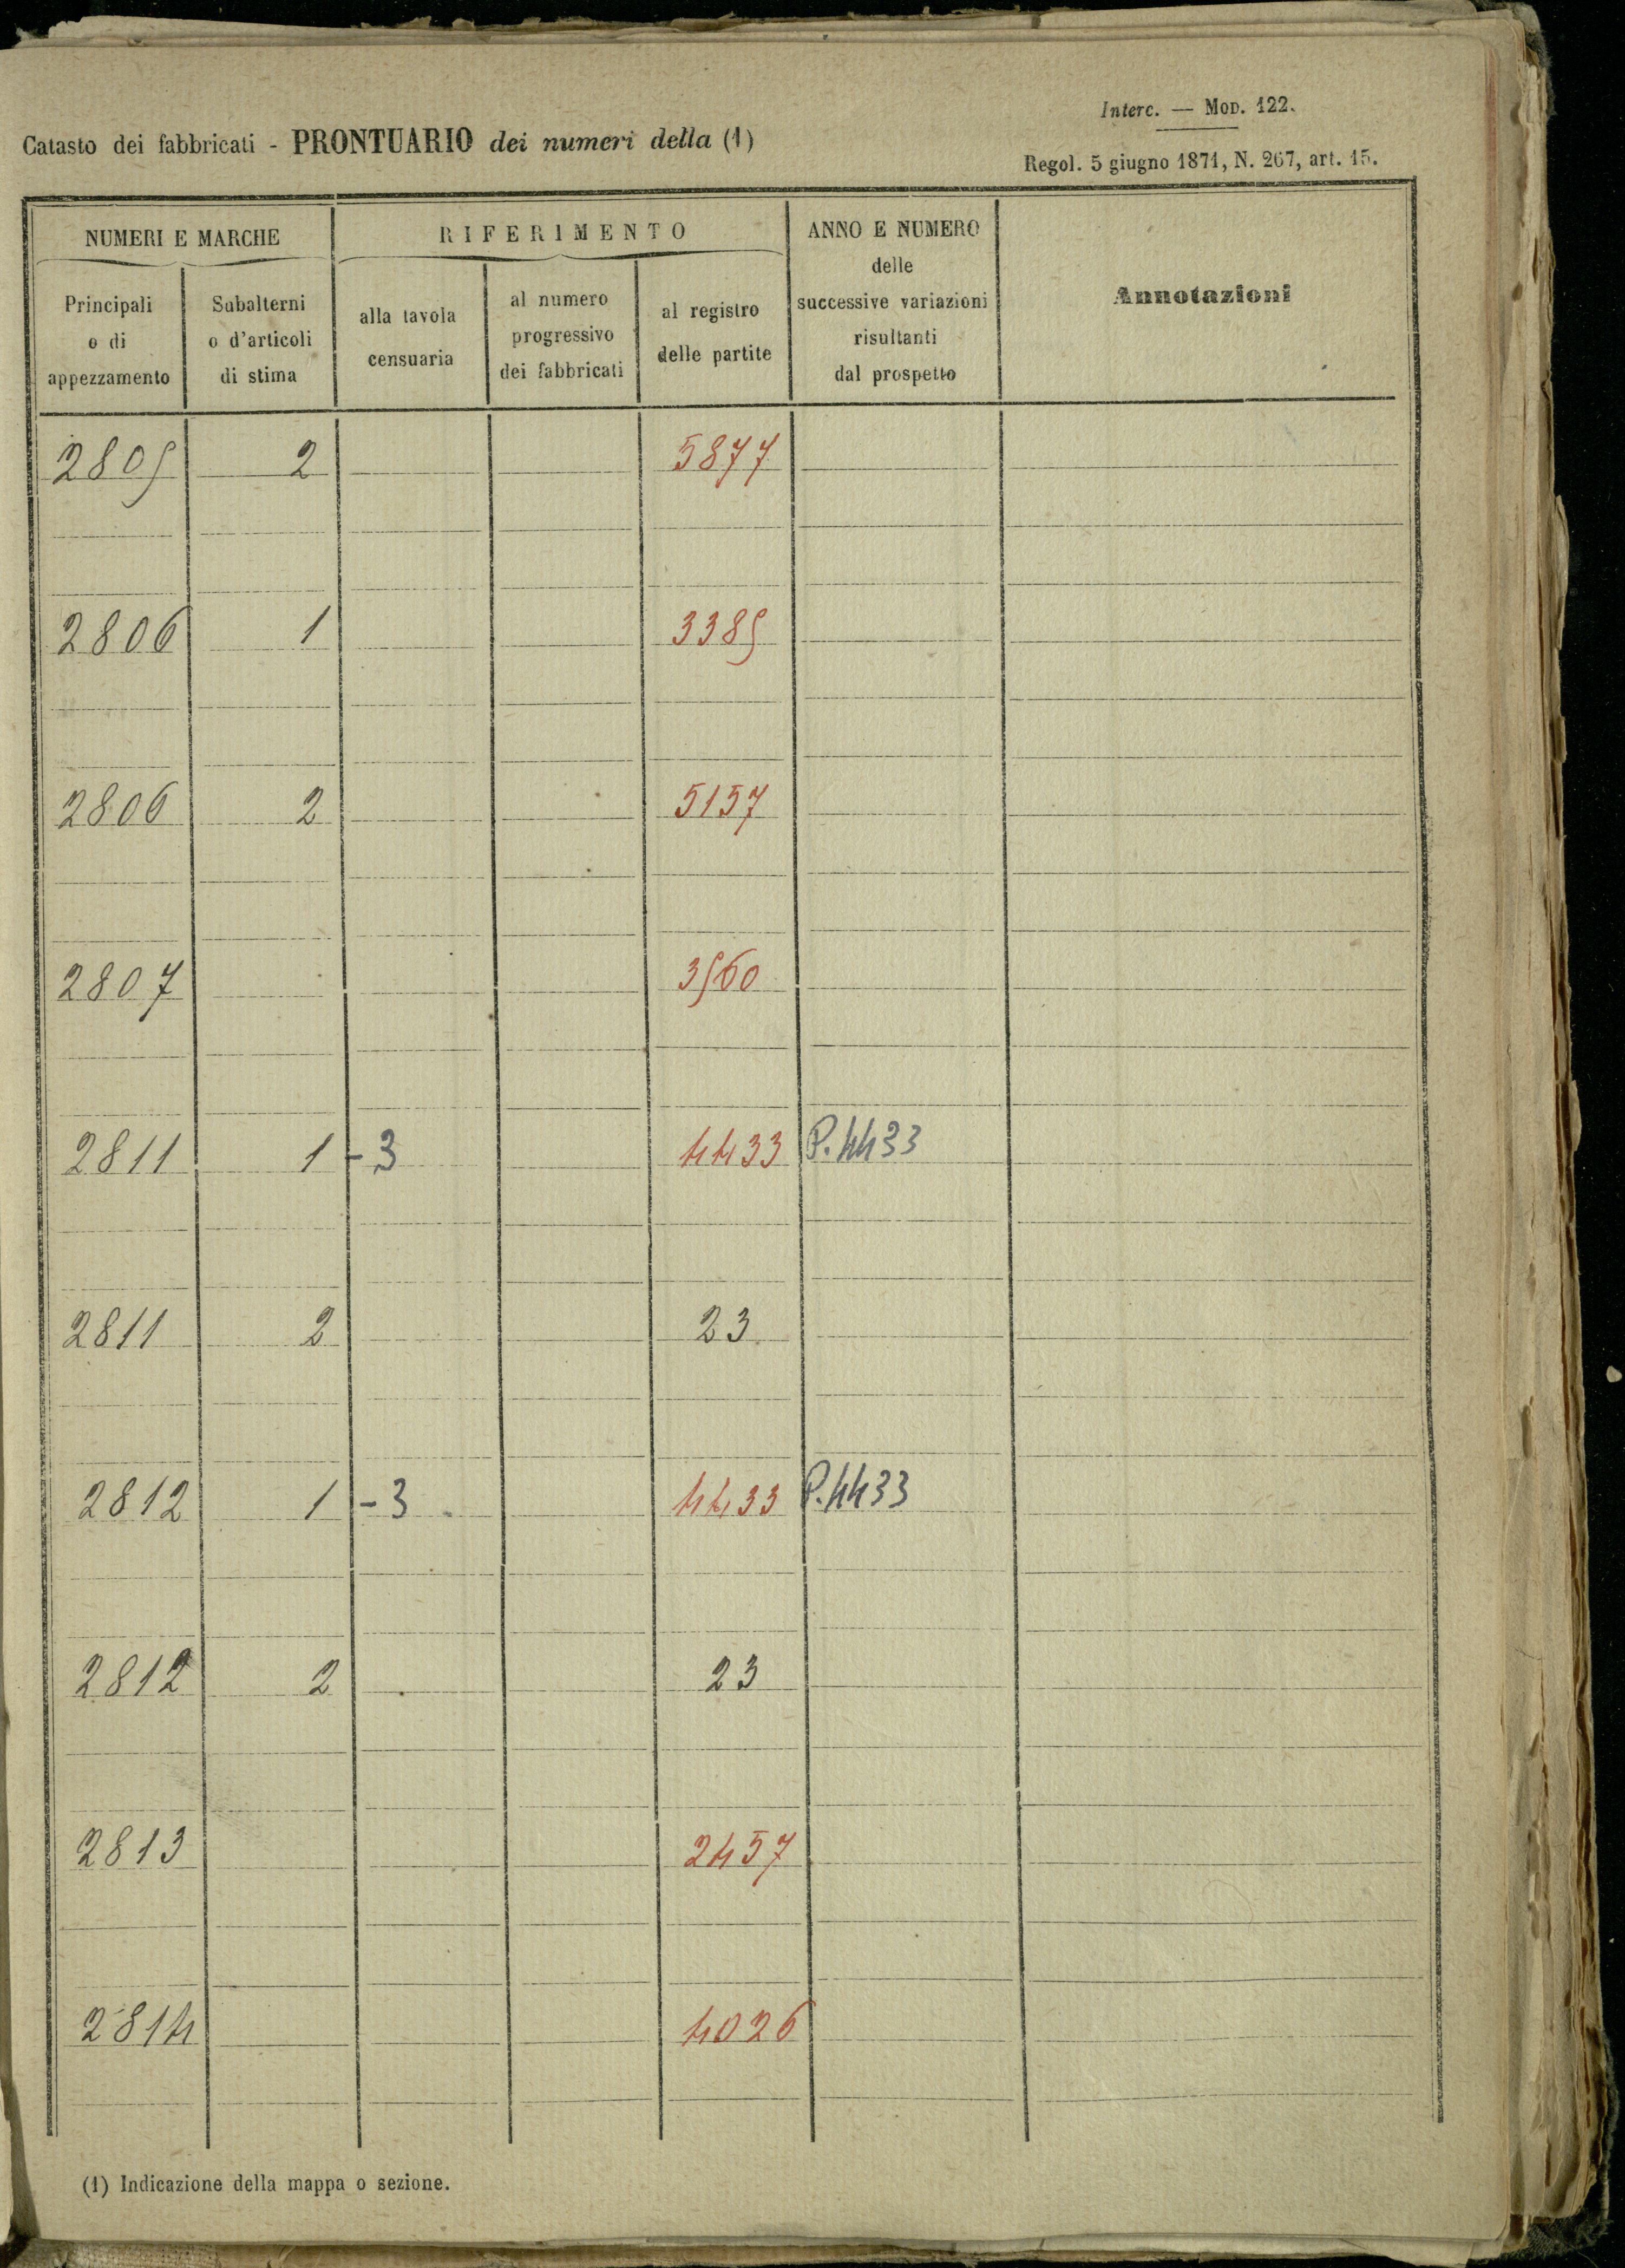 Interc. — Mod. 122.
Catasto dei fabbricati - PRONTUARIO dei numeri della (1)
Regol. 5 giugno 1871, N. 267, art. 15.
NUMERI E MARCHE
RIFERIMENTO
ANNO E NUMERO
delle
successive variazioni
risultanti
dal prospetto
Annotazioni
Principali
o di
appezzamento
Subalterni
o d'articoli
di stima
alla tavola
censuaria
al numero
progressivo
dei fabbricati
al registro
delle partite
2805 2 5877
2806 1 3385
2806 2 5157
2807 3560
2811 1 - 3 4433 P. 4433
2811 2 23
2812 1 - 3 4433 P. 4433
2812 2 23
2813 2457
2814 4026
(1) Indicazione della mappa o sezione.